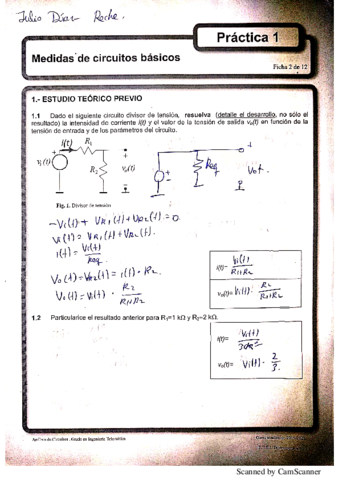 Julio Díaz Roche.
Práctica 1
Medidas de circuitos básicos
Ficha 2 de 12
1.- ESTUDIO TEÓRICO PREVIO
1.1 Dado el siguiente circuito divisor de tensión, resuelva (detalle el desarrollo, no sólo el
resultado) la intensidad de corriente i(t) y el valor de la tensión de salida vo(t) en función de la
tensión de entrada y de los parámetros del circuito.
i(t) R1
vi(t) R2 vo(t)
Req Vo t.
Fig. 1. Divisor de tensión
-Vi(t) + VR1(t) + VR2(t) = 0.
Vi(t) = VR1(t) + VR2(t).
i(t) = Vi(t) / Req
Vo(t) = VR2(t) = i(t) · R2.
Vo(t) = Vi(t) · R2 / R1+R2
i(t)= Vi(t) / R1+R2
vo(t)= Vi(t) · R2 / R1+R2
1.2 Particularice el resultado anterior para R1=1 kΩ y R2=2 kΩ.
i(t)= Vi(t)
vo(t)= Vi(t) · 2/3.
Scanned by CamScanner